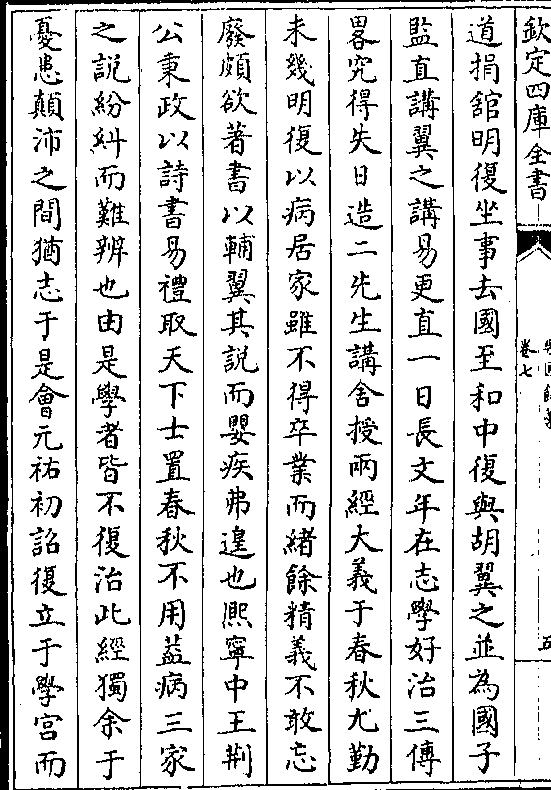 欽定四庫全書
卷七
五
道捐舘明復坐事去國至和中復與胡翼之並為國子
監直講翼之講易更直一日長文年在志學好治三傳
畧究得失日造二先生講舍授兩經大義于春秋尤勤
未幾明復以病居家雖不得卒業而緒餘精義不敢忘
廢頗欲著書以輔翼其說而嬰疾弗遑也熈寧中王荆
公秉政以詩書易禮取天下士置春秋不用葢病三家
之說紛糾而難辨也由是學者皆不復治此經獨余于
憂患顛沛之間猶志于是會元祐初詔復立于學宮而